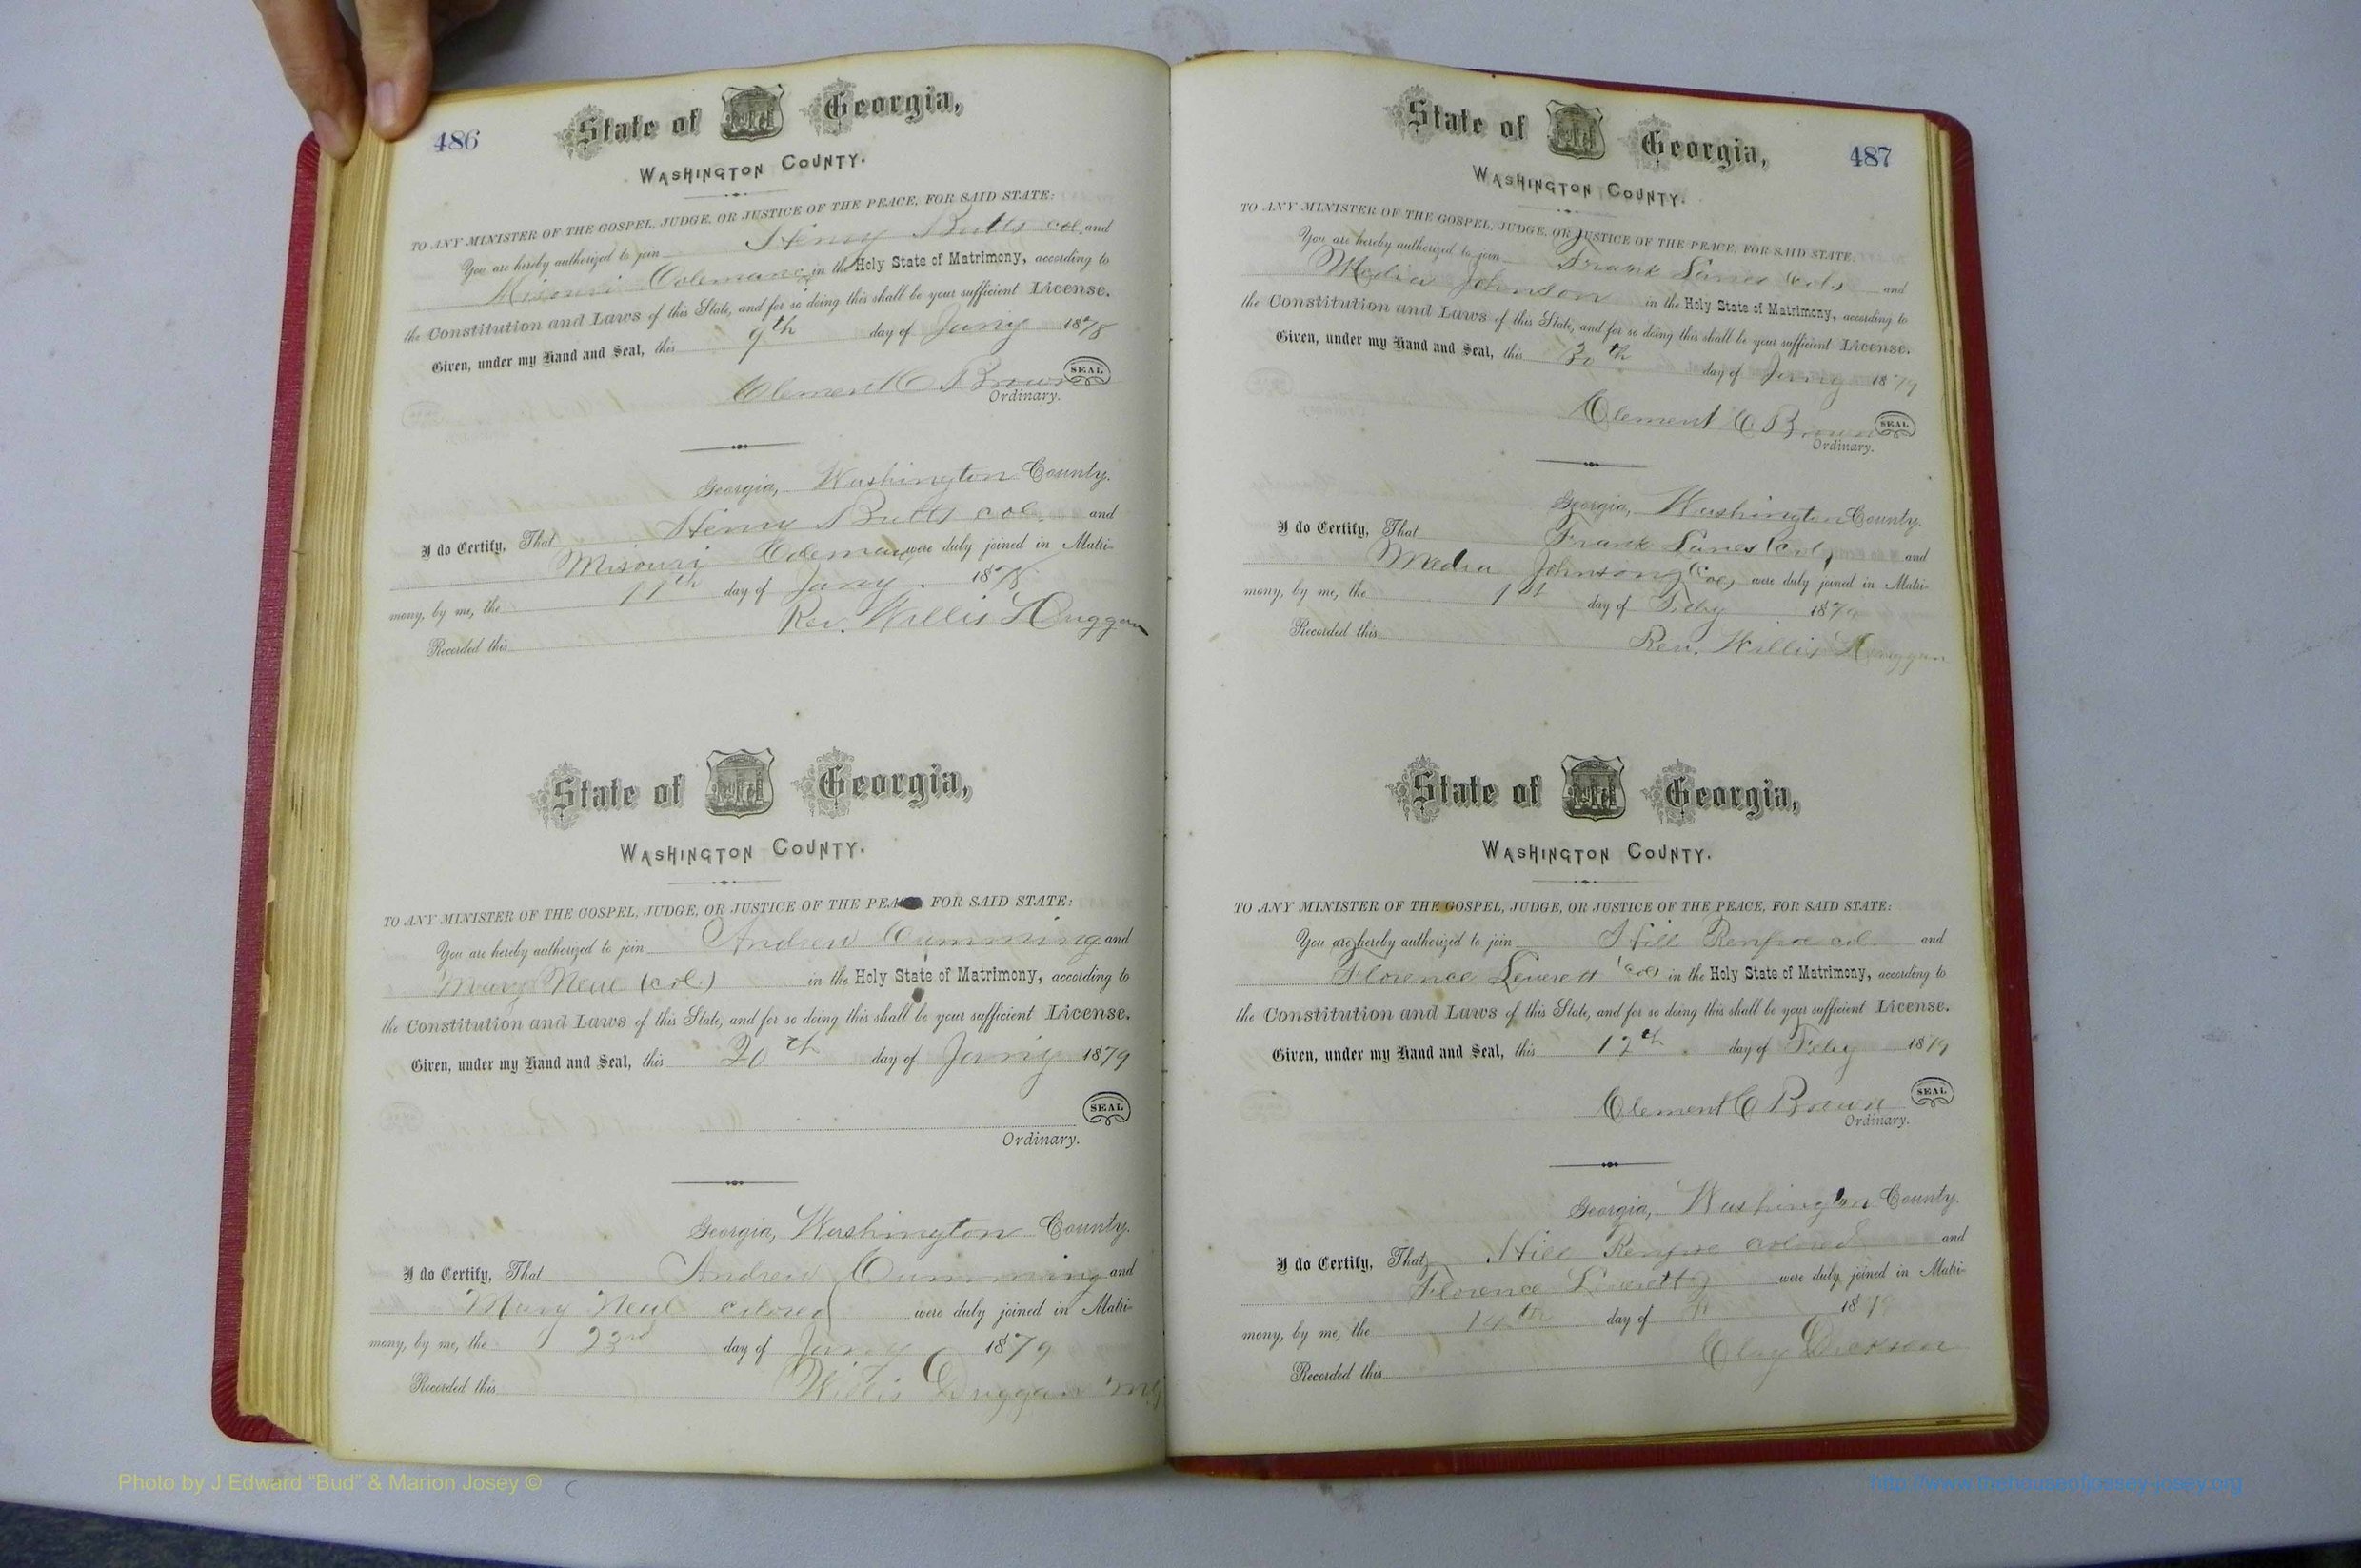 486
State of Georgia,
WASHINGTON COUNTY.
TO ANY MINISTER OF THE GOSPEL, JUDGE, OR JUSTICE OF THE PEACE, FOR SAID STATE:
You are hereby authorized to join Henry Butts col. and
Misouri Coleman in the Holy State of Matrimony, according to
the Constitution and Laws of this State, and for so doing this shall be your sufficient License.
Given, under my Hand and Seal, this 9th day of Jany 1878
Clement C Brown SEAL
Ordinary.
Georgia, Washington County.
I do Certify, That Henry Butts col. and
Misouri Coleman were duly joined in Matri-
mony, by me, the 11th day of Jany. 1878
Rev. Willis Duggan
Recorded this
State of Georgia,
WASHINGTON COUNTY.
TO ANY MINISTER OF THE GOSPEL, JUDGE, OR JUSTICE OF THE PEACE FOR SAID STATE:
You are hereby authorized to join Andrew Cumming and
Mary Neal (col.) in the Holy State of Matrimony, according to
the Constitution and Laws of this State, and for so doing this shall be your sufficient License.
Given, under my Hand and Seal, this 20th day of Jany 1879
SEAL
Ordinary.
Georgia, Washington County.
I do Certify, That Andrew Cumming and
Mary Neal colored were duly joined in Matri-
mony, by me, the 23rd day of Jany 1879
Willis Duggan M.G
Recorded this
487
State of Georgia,
WASHINGTON COUNTY.
TO ANY MINISTER OF THE GOSPEL, JUDGE, OR JUSTICE OF THE PEACE, FOR SAID STATE:
You are hereby authorized to join Frank Lanes and
Media Johnson in the Holy State of Matrimony, according to
the Constitution and Laws of this State, and for so doing this shall be your sufficient License.
Given, under my Hand and Seal, this 30th day of Jany 1879
Clement C Brown SEAL
Ordinary.
Georgia, Washington County.
I do Certify, That Frank Lanes (col) and
Media Johnson (Col) were duly joined in Matri-
mony, by me, the 1st day of Feby 1879
Rev. Willis Duggan
Recorded this
State of Georgia,
WASHINGTON COUNTY.
TO ANY MINISTER OF THE GOSPEL, JUDGE, OR JUSTICE OF THE PEACE, FOR SAID STATE:
You are hereby authorized to join Hill Renfroe col. and
Florence Leverett (col) in the Holy State of Matrimony, according to
the Constitution and Laws of this State, and for so doing this shall be your sufficient License.
Given, under my Hand and Seal, this 12th day of Feby 1879
Clement C Brown SEAL
Ordinary.
Georgia, Washington County.
I do Certify, That Hill Renfroe colored and
Florence Leverett were duly joined in Matri-
mony, by me, the 14th day of 1879
Clay Dickson
Recorded this
Photo by J Edward “Bud” & Marion Josey ©
http://www.thehouseofjossey-josey.org